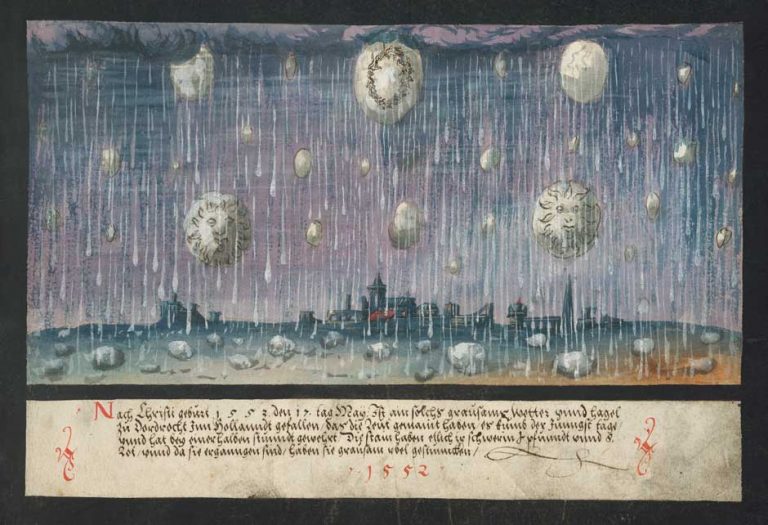 Nach Christi geburt 1 5 5 2. den 17. tag May. Ist ain solchs grausams wetter vnnd hagel
zu Dordrecht Inn Hollanndt gefallen, das die leut gemaint haben es kumb der Jungst tage
vnnd hat beÿ einer halben stunndt gewehrt. Die stain haben etlich ir schwerin pfundt vnnd 8.
Lot, vnnd da sie ergangngen sind, haben sie grausam vbel gestunncken,
· 1 5 5 2 ·